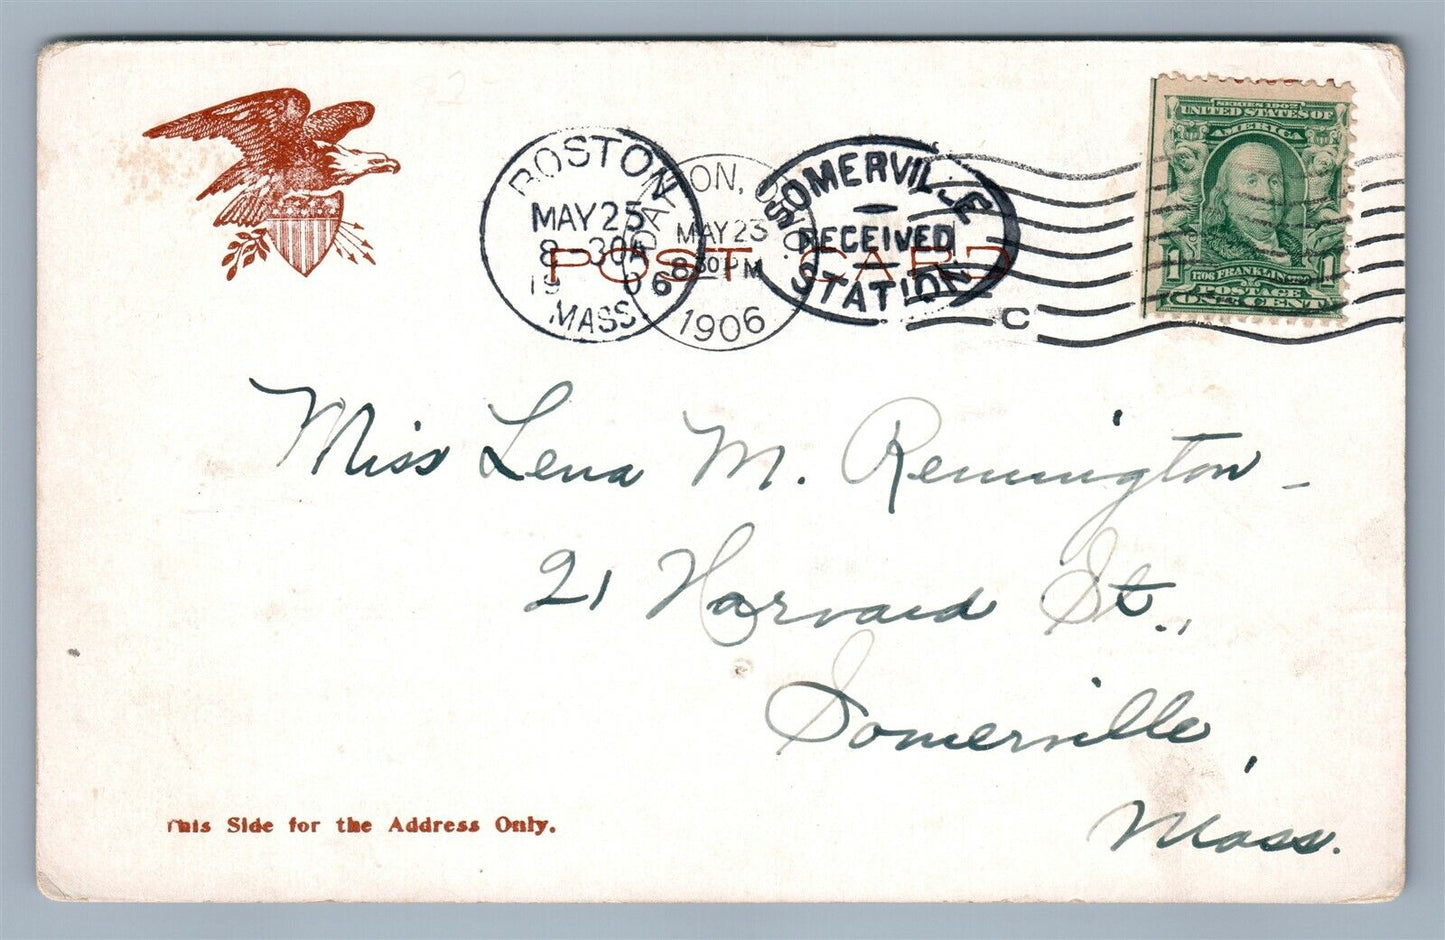 BOSTON
MAY 25
8 30A
19 06
MASS.
ON, OHIO.
MAY 23
8 30 PM
1906
SOMERVILLE
RECEIVED
STATION
C
POST CARD
SERIES 1902
UNITED STATES OF
AMERICA
1 1706 FRANKLIN 1790 1
POSTAGE
ONE CENT
Miss Lena M. Remington -
21 Harvard St.,
Somerville,
Mass.
This Side for the Address Only.